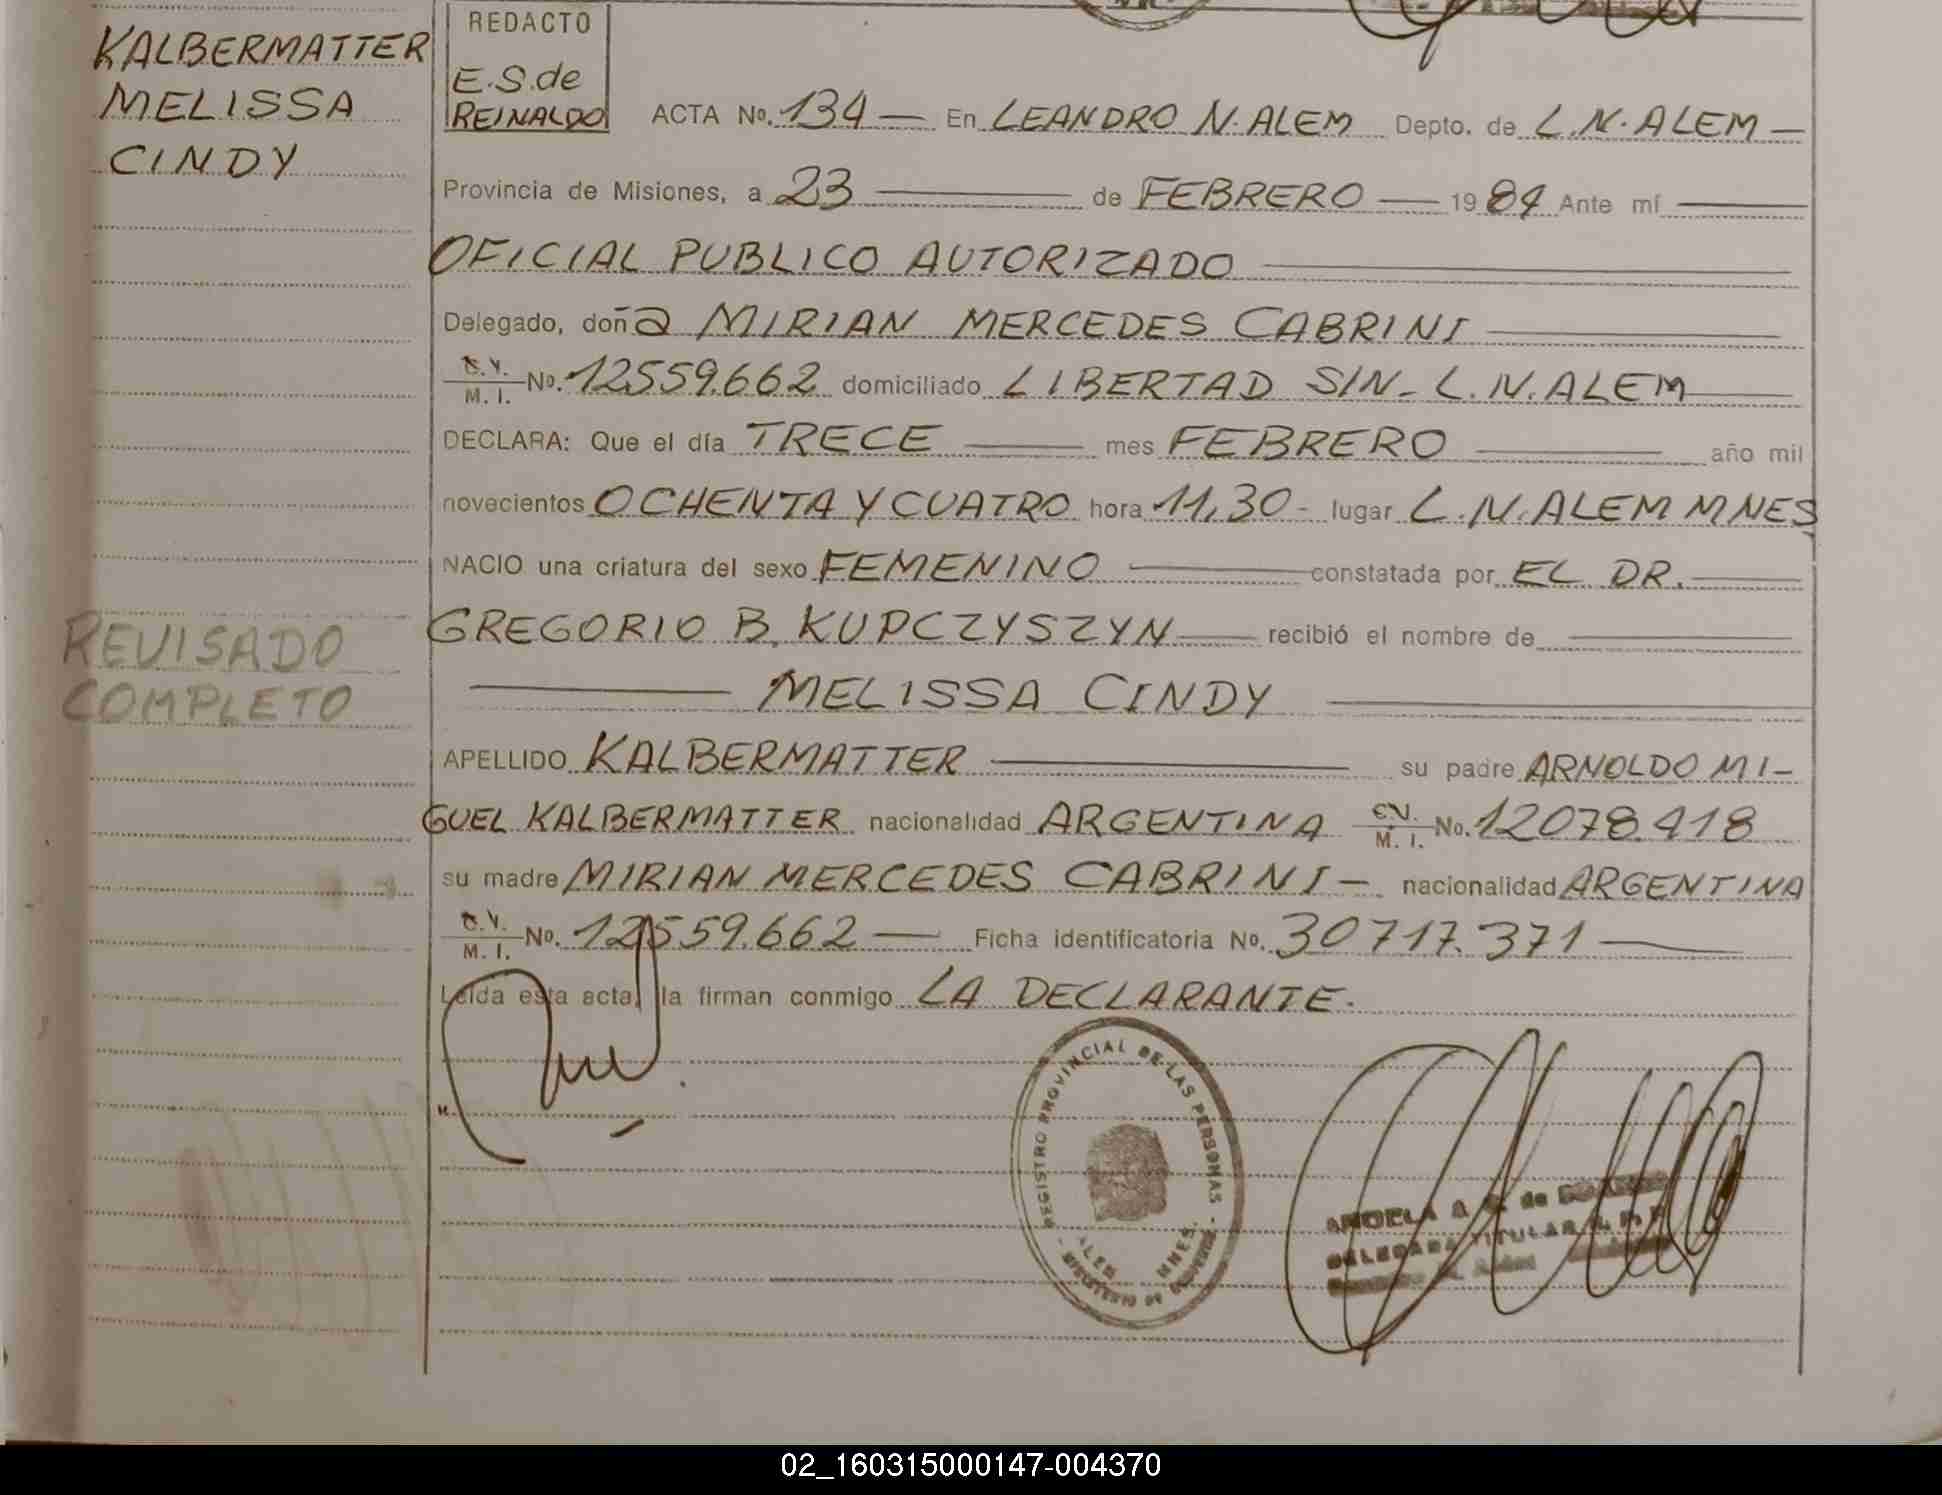 KALBERMATTER
MELISSA
CINDY
REVISADO
COMPLETO
REDACTO
E.S.de
REINALDO
ACTA No. 134 — En LEANDRO N. ALEM Depto. de L.N. ALEM —
Provincia de Misiones, a 23 — de FEBRERO — 1984 Ante mí —
OFICIAL PUBLICO AUTORIZADO —
Delegado, doña MIRIAN MERCEDES CABRINI —
C.Y. M.I. No. 12559.662 domiciliado LIBERTAD S/N- L.N.ALEM —
DECLARA: Que el día TRECE — mes FEBRERO — año mil
novecientos OCHENTA Y CUATRO hora 11,30- lugar L.N.ALEM MNES
NACIO una criatura del sexo FEMENINO — constatada por EL DR. —
GREGORIO B. KUPCZYSZYN — recibió el nombre de —
— MELISSA CINDY —
APELLIDO KALBERMATTER — su padre ARNOLDO MI-
GUEL KALBERMATTER nacionalidad ARGENTINA C.V. M.I. No. 12078.418
su madre MIRIAN MERCEDES CABRINI — nacionalidad ARGENTINA
C.Y. M.I. No. 12559.662 — Ficha identificatoria No. 30717.371 —
Leída esta acta, la firman conmigo LA DECLARANTE.
REGISTRO PROVINCIAL DE LAS PERSONAS -
ALEM MNES.
- MINISTERIO DE GOBIERNO -
ANGELA A. de
DELEGADA TITULAR R. P. P.
02_160315000147-004370